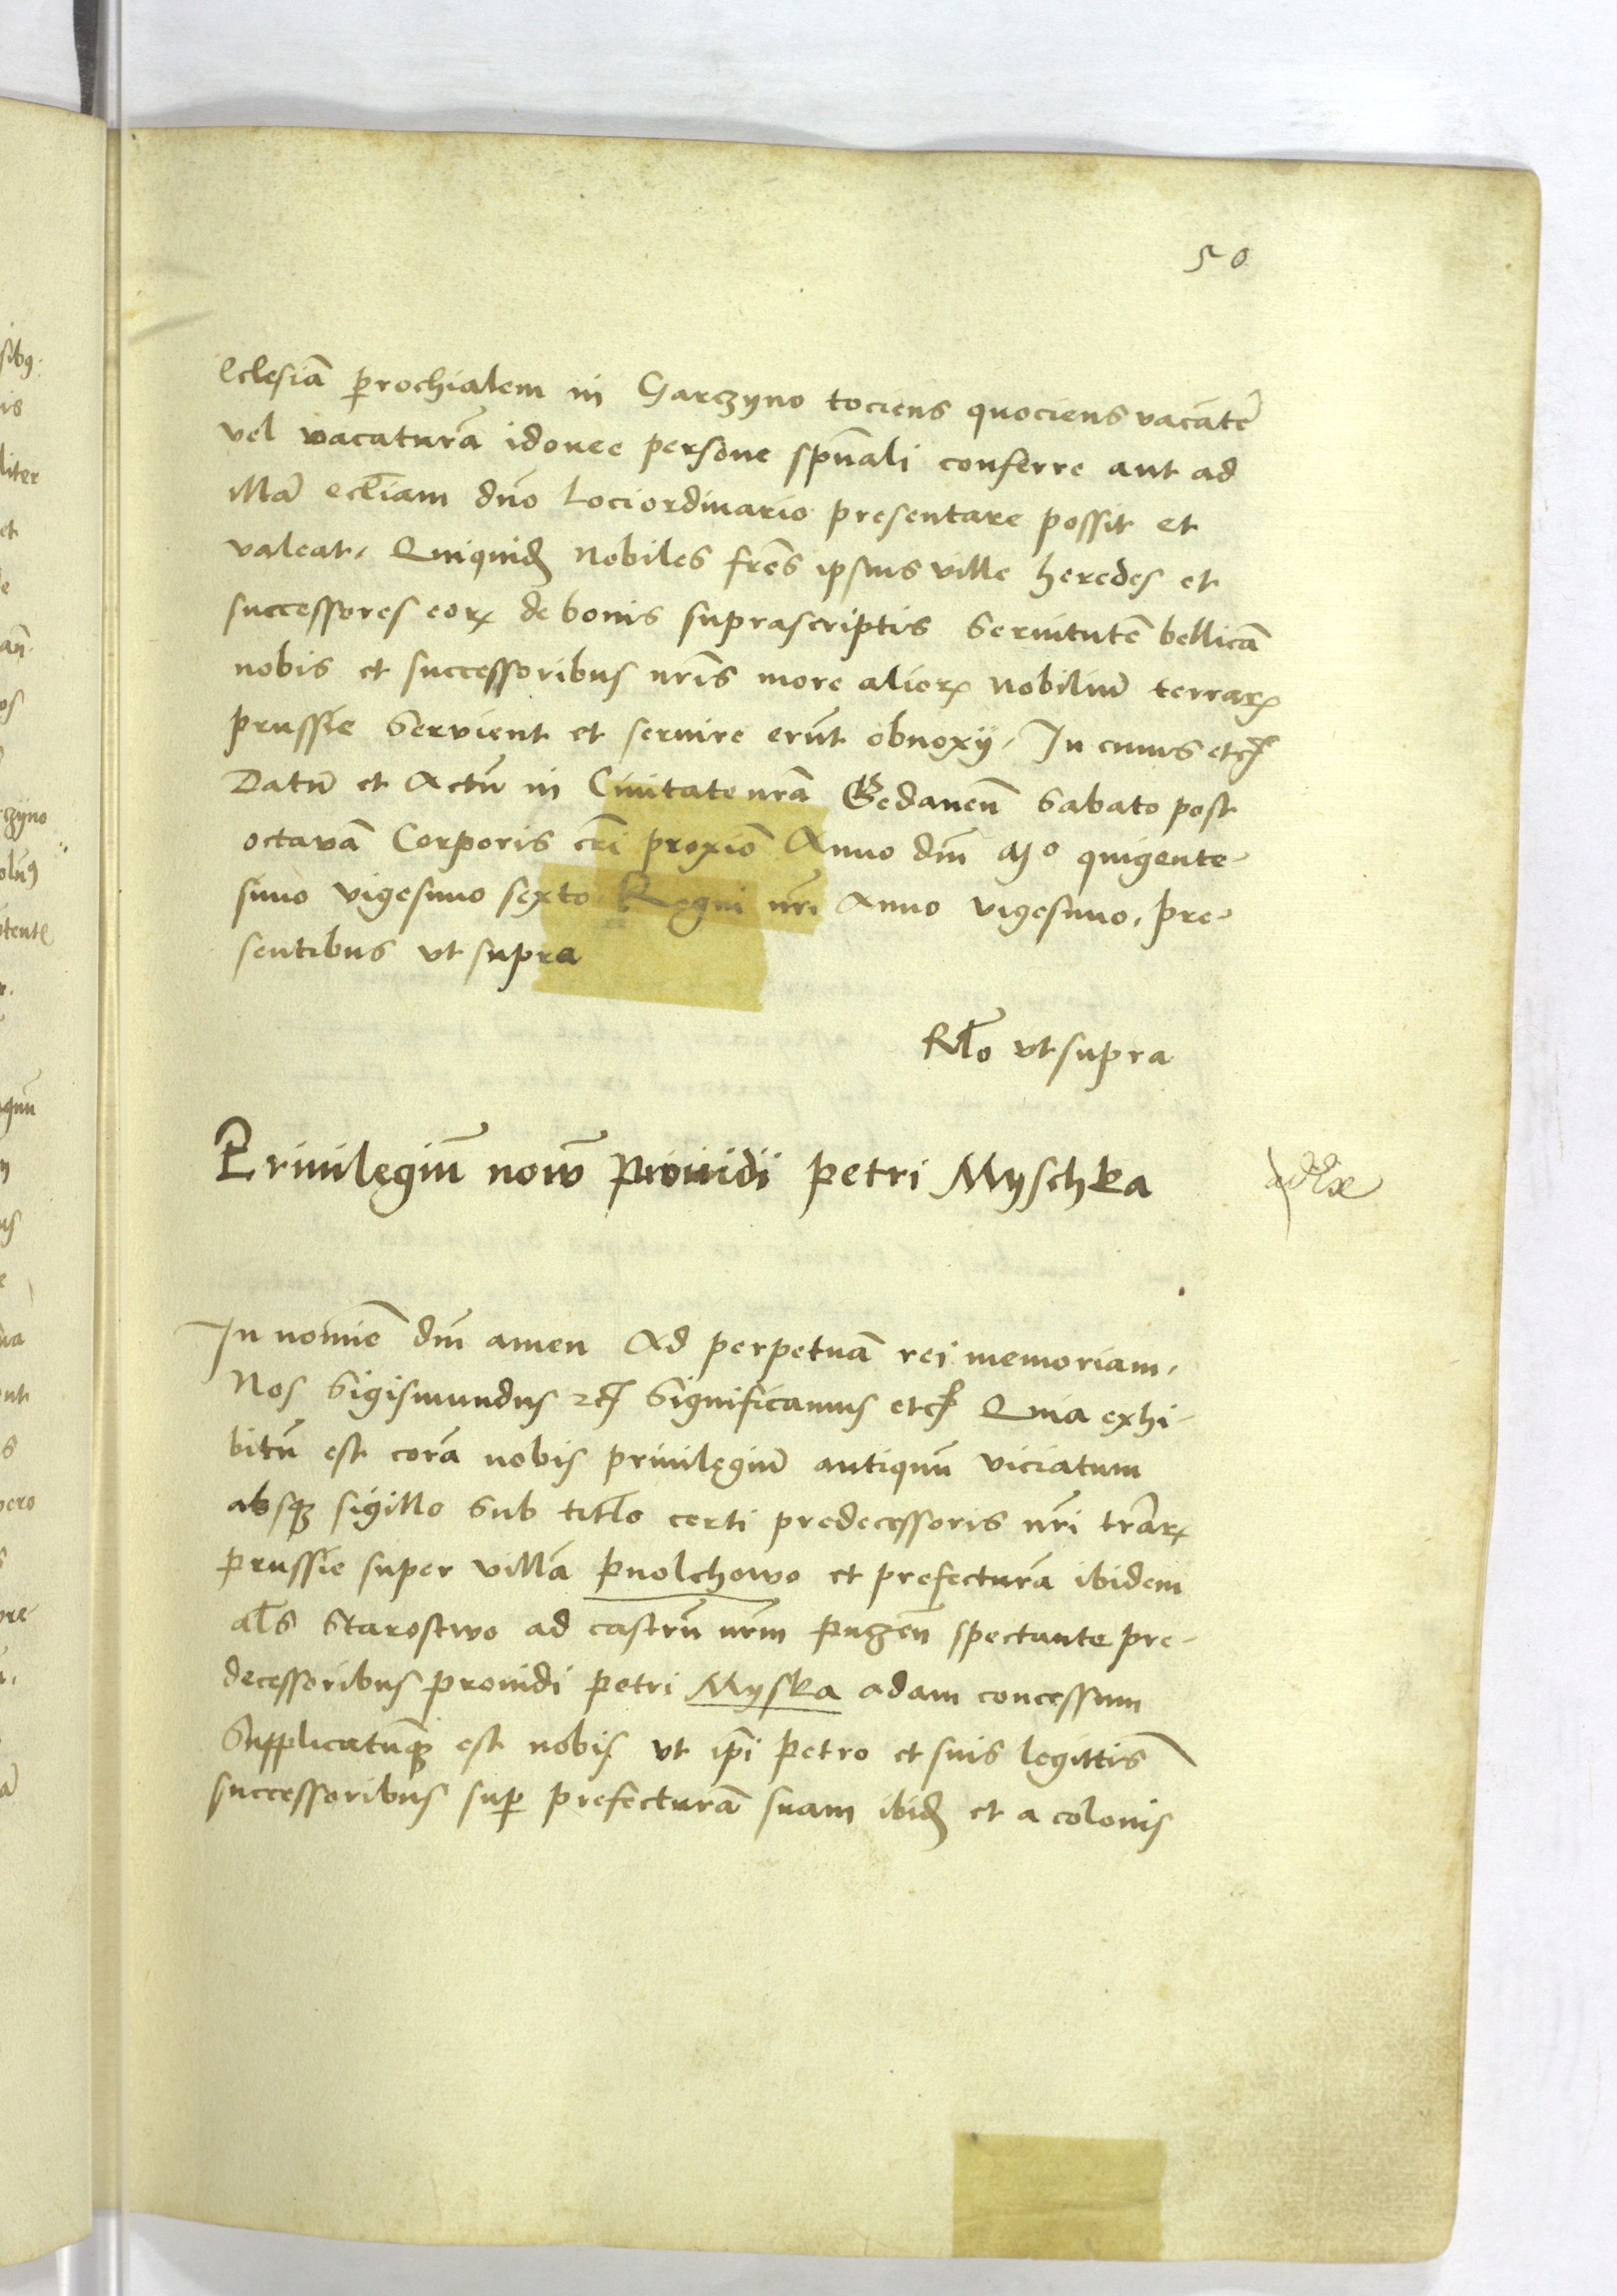 50
Eclesiā prochialem in Garczyno tociens quociens vacātē
vel vacaturā idonee persone spūali conferre aut ad
illā eccliam dño Lociordinario presentare possit et
valeat. Quiquid nobiles frēs ipsius ville heredes et
successores eorꝝ de bonis suprascriptis Seruitutē bellicā
nobis et successoribus nr̄is more aliorꝝ nobiliū terrarꝝ
prussie Servient et seruire erūt obnoxij. In cuius etc
Datū et Actū in Ciuitate nrā Gedaneñ Sabato post
octavā Corporis crī proxiō Anno dñi Mo quigente-
simo vigesimo sexto Regni nrī Anno vigesimo. Pre-
sentibus vt supra
Rlo vt supra
Priuilęgiū nowō prouidi Petri Myschka
In nomīe dñi amen Ad perpetuā rei memoriam.
Nos Sigismundus etc Significamus etc Quia exhi-
bitū est corā nobis priuilęgiū antiquū viciatum
absqꝫ sigillo Sub titlo certi predecessoris nrī trārꝝ
Prussie super villā Puolchowo et prefecturā ibidem
als Starostwo ad castrū nrm̄ Puczeñ spectante pre-
decessoribus prouidi Petri Myska adam concessum
Supplicatūqꝫ est nobis vt ipī Petro et suis legittīs
successoribus sup prefecturā suam ibid et a colonis